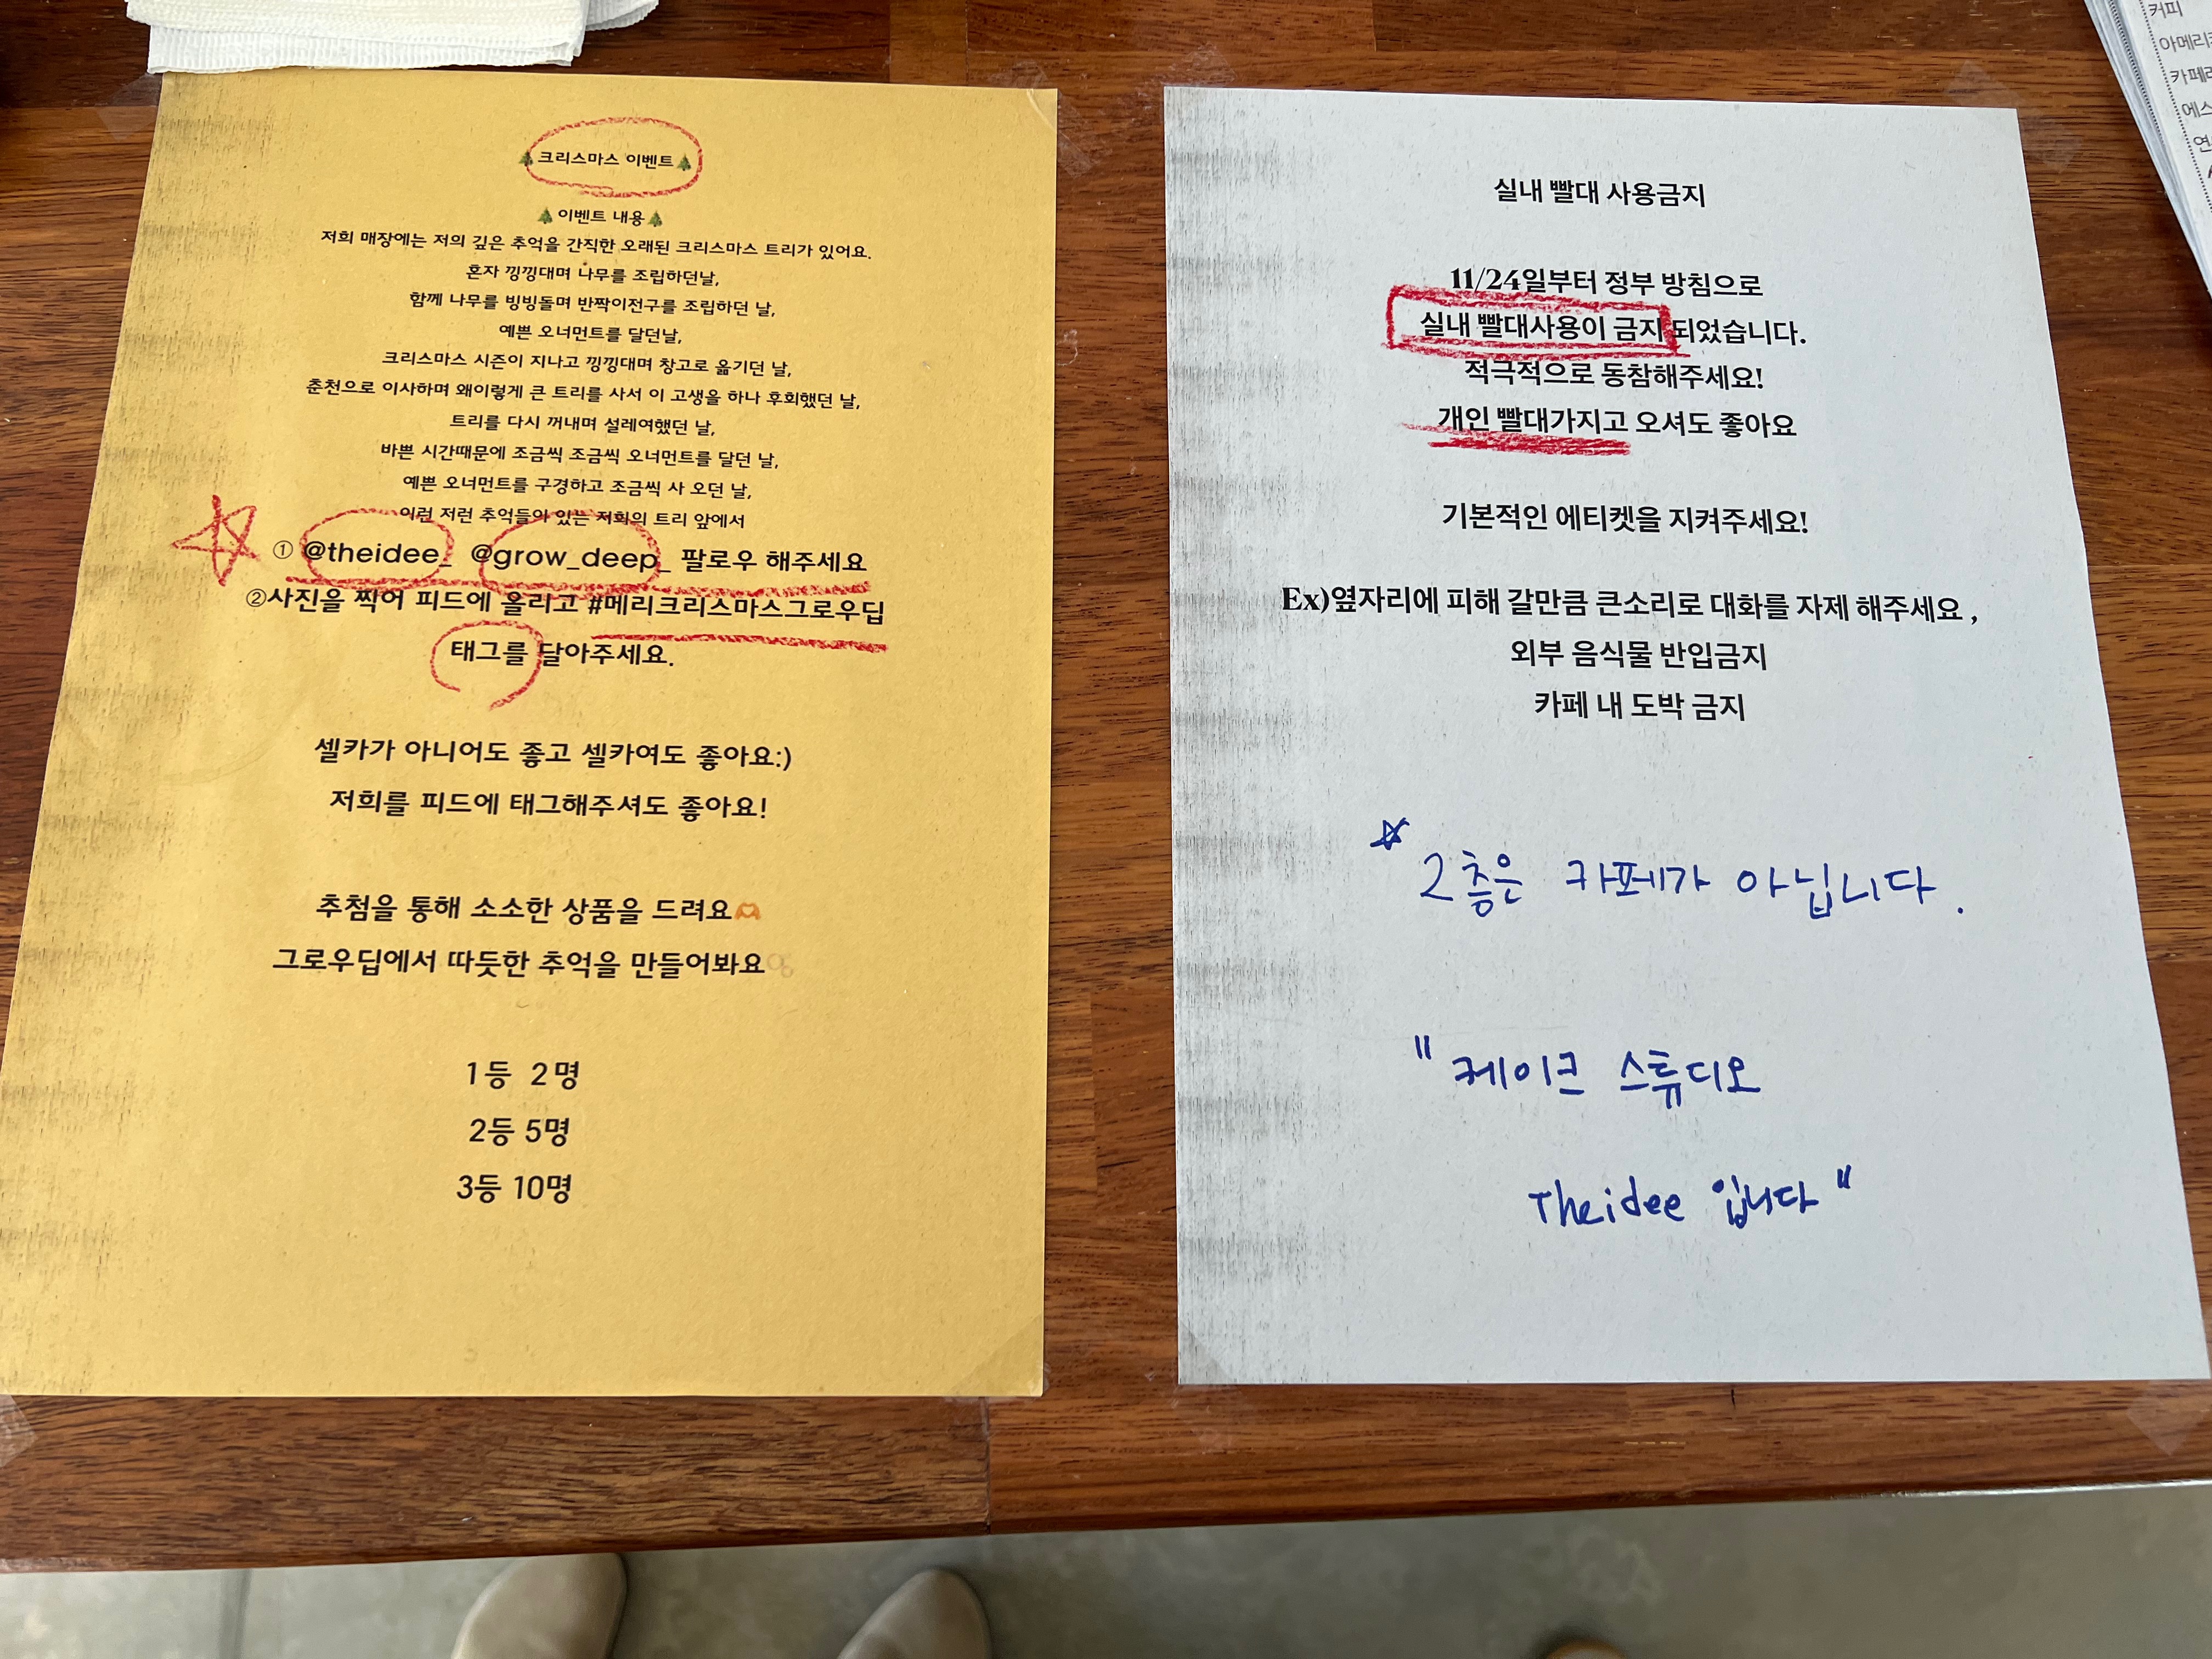 크리스마스 이벤트
이벤트 내용
저희 매장에는 저의 깊은 추억을 간직한 오래된 크리스마스 트리가 있어요.
혼자 낑낑대며 나무를 조립하던날,
함께 나무를 빙빙돌며 반짝이전구를 조립하던 날,
예쁜 오너먼트를 달던날,
크리스마스 시즌이 지나고 낑낑대며 창고로 옮기던 날,
춘천으로 이사하며 왜이렇게 큰 트리를 사서 이 고생을 하나 후회했던 날,
트리를 다시 꺼내며 설레여했던 날,
바쁜 시간때문에 조금씩 조금씩 오너먼트를 달던 날,
예쁜 오너먼트를 구경하고 조금씩 사 오던 날,
이런 저런 추억들이 있는 저희의 트리 앞에서
① @theidee_ @grow_deep_ 팔로우 해주세요
②사진을 찍어 피드에 올리고 #메리크리스마스그로우딥
태그를 달아주세요.
셀카가 아니어도 좋고 셀카여도 좋아요:)
저희를 피드에 태그해주셔도 좋아요!
추첨을 통해 소소한 상품을 드려요🫶
그로우딥에서 따듯한 추억을 만들어봐요
1등 2명
2등 5명
3등 10명
실내 빨대 사용금지
11/24일부터 정부 방침으로
실내 빨대사용이 금지 되었습니다.
적극적으로 동참해주세요!
개인 빨대가지고 오셔도 좋아요
기본적인 에티켓을 지켜주세요!
Ex)옆자리에 피해 갈만큼 큰소리로 대화를 자제 해주세요 ,
외부 음식물 반입금지
카페 내 도박 금지
☆ 2층은 카페가 아닙니다.
" 케이크 스튜디오
Theidee 입니다 "
커피